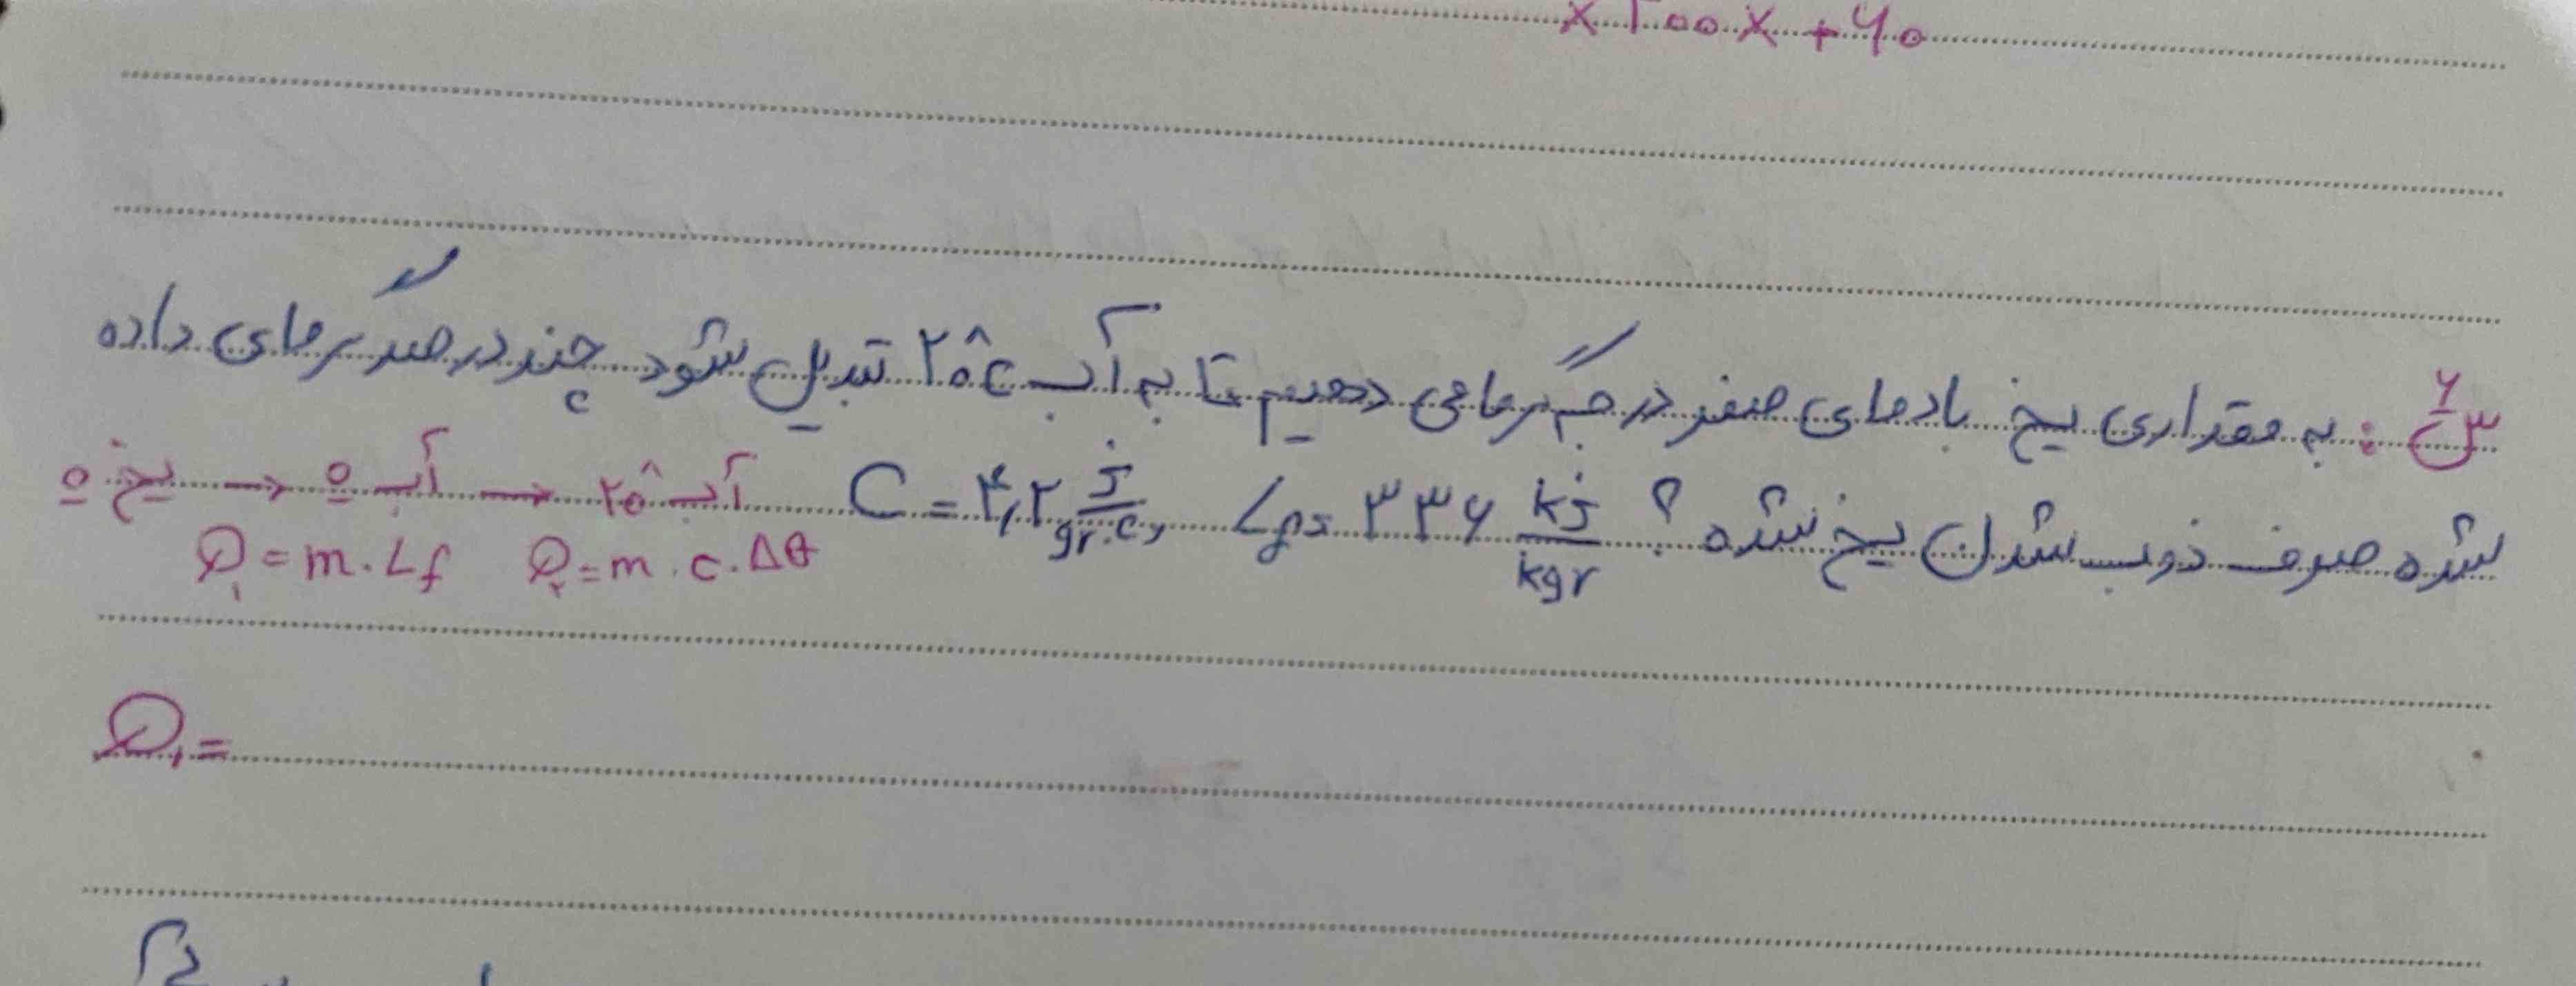 × ۲۰۰ × + ۶۰
س۶ : به مقداری یخ بادمای صفر درجه گرما می دهیم تا به آب ۲۰°c تبدیل شود چند درصد گرمای داده
شده صرف ذوب شدن یخ شده ؟ Lf = ۳۳۶ kj/kgr , C = ۴,۲ j/gr.c
یخ ۰ → آب ۰ → آب ۲۰°
Q۱ = m . Lf Q۲ = m . c . Δθ
Q۱ =